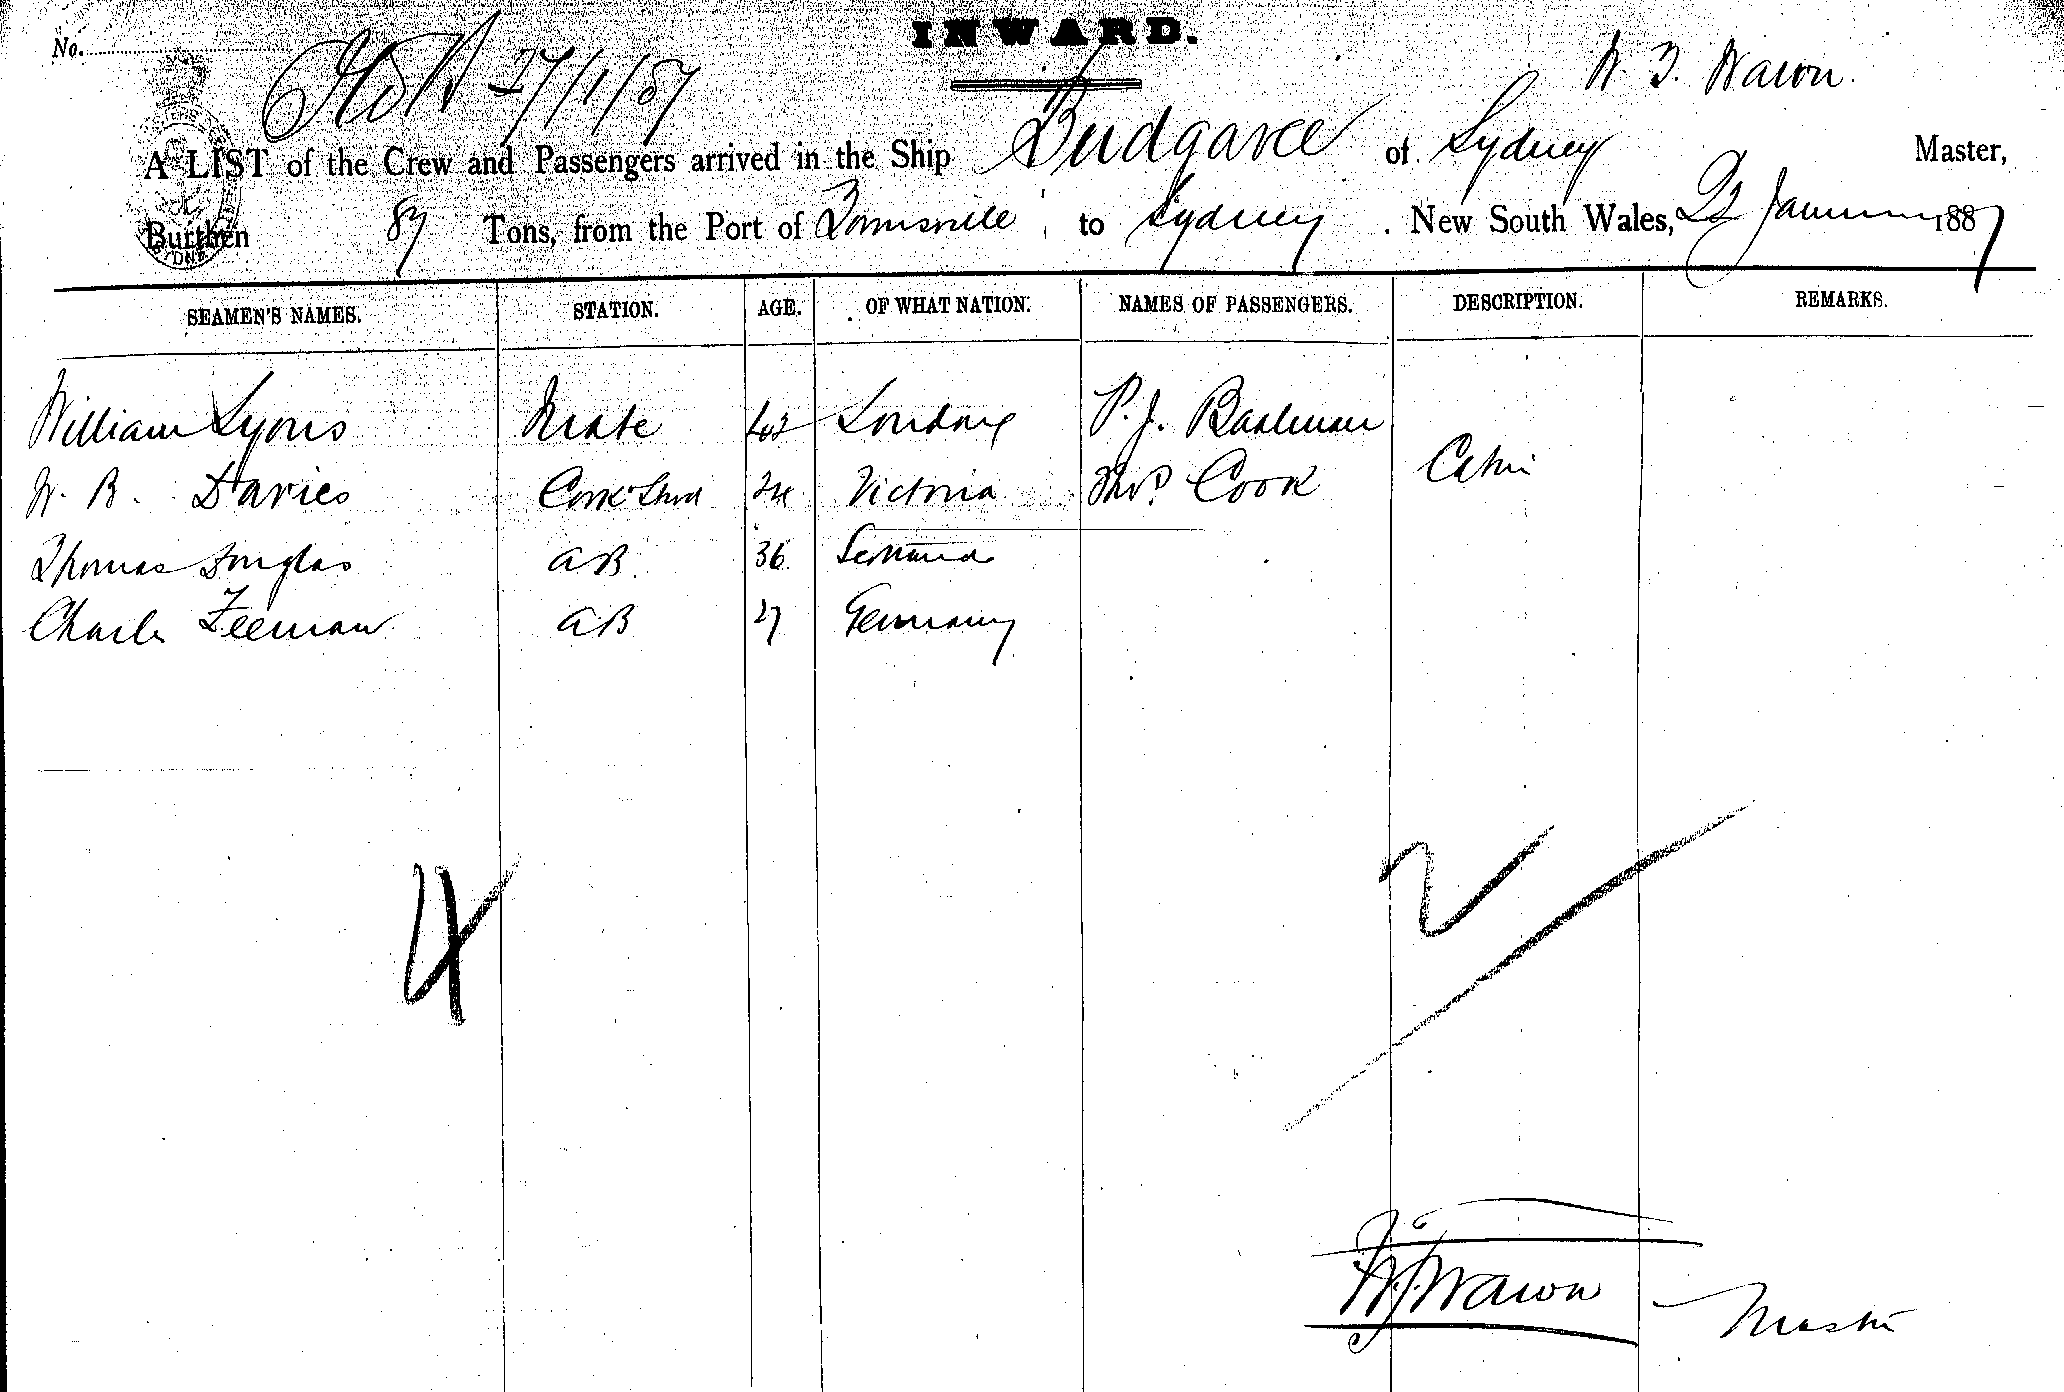 INWARD.
No. 27/1/87
W. T. Wawn.
A LIST of the Crew and Passengers arrived in the Ship Budgaree of Sydney Master,
Burthen 87 Tons, from the Port of Townsville to Sydney. New South Wales, January 1887
SEAMEN'S NAMES. STATION. AGE. OF WHAT NATION. NAMES OF PASSENGERS. DESCRIPTION. REMARKS.
William Lyons Mate London P. J.
W. B. Davies Cook & Stwd 24 Victoria Thos. Cook Cabin
Thomas Douglas AB 36
Charles Zeeman AB 27 Germany
4
2
W. T. Wawn Master